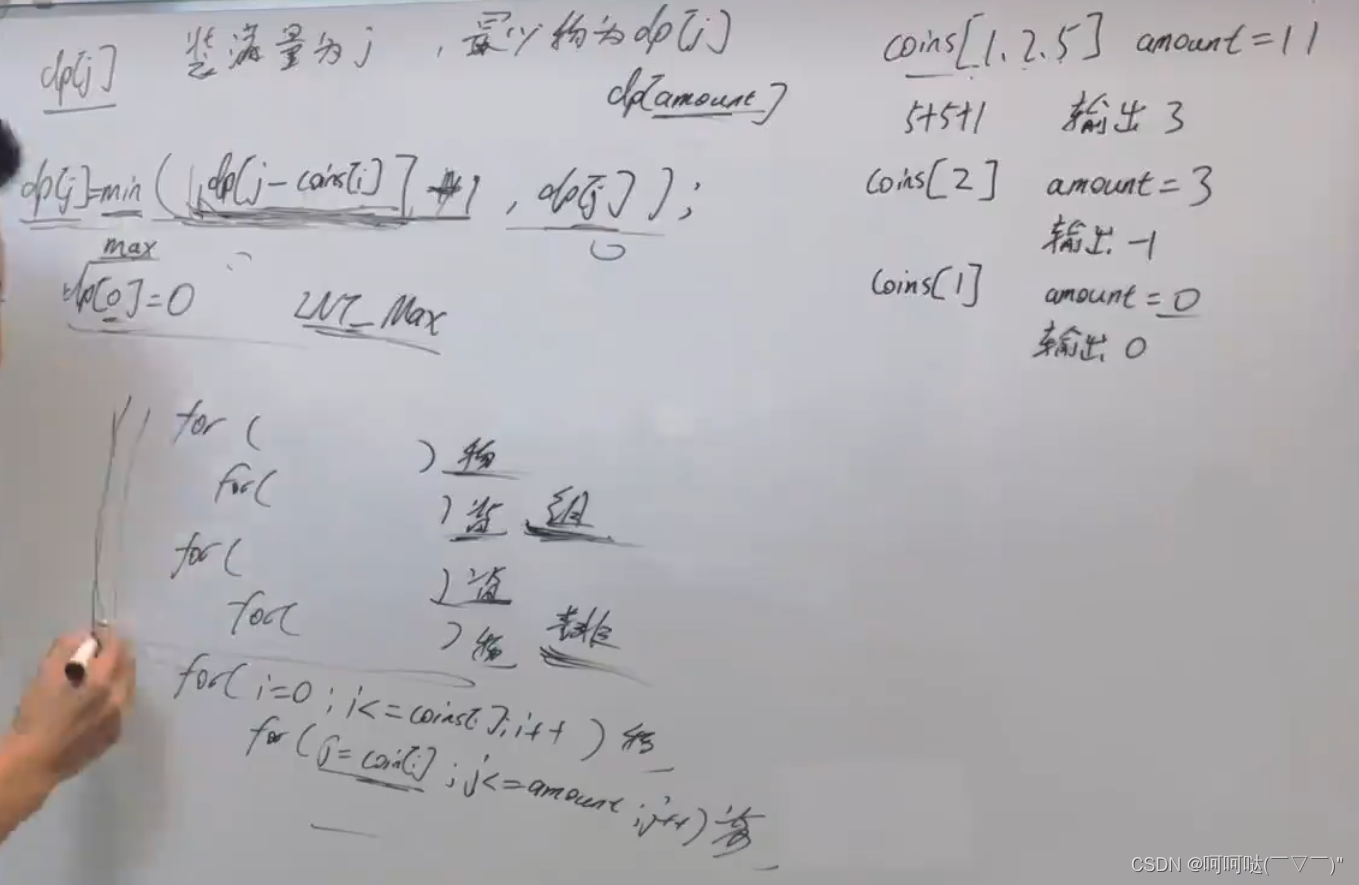 dp[j] 装满量为j , 最少物为dp[j]
dp[amount]
dp[j]=min(dp[j-coins[i]]+1, dp[j]);
max
dp[0]=0 INT_Max
coins[1.2.5] amount=11
5+5+1 输出 3
coins[2] amount=3
输出 -1
coins[1] amount=0
输出 0
for( ) 物
for( ) 背 组
for( ) 背
for( ) 物 排
for(i=0;i<=coins[].i++) 物
for(j=coin[i];j<=amount;j++) 背
CSDN @呵呵哒(￣▽￣)"